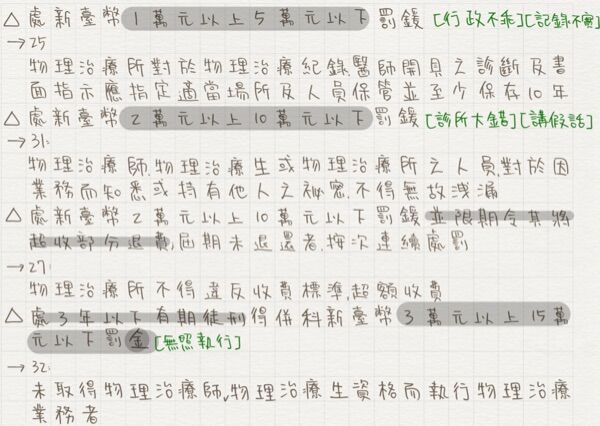 △ 處新臺幣1萬元以上5萬元以下罰鍰 [行政不乖][記錄不實]
→25
物理治療所對於物理治療紀錄、醫師開具之診斷及書
面指示應指定適當場所及人員保管並至少保存10年
△ 處新臺幣2萬元以上10萬元以下罰鍰 [診所大錯][講假話]
→31:
物理治療師、物理治療生或物理治療所之人員,對於因
業務而知悉或持有他人之祕密,不得無故洩漏
△ 處新臺幣2萬元以上10萬元以下罰鍰並限期令其將
超收部分退費,屆期未退還者,按次連續處罰
→27:
物理治療所不得違反收費標準,超額收費
△ 處3年以下有期徒刑得併科新臺幣3萬元以上15萬
元以下罰金 [無照執行]
→32:
未取得物理治療師、物理治療生資格而執行物理治療
業務者